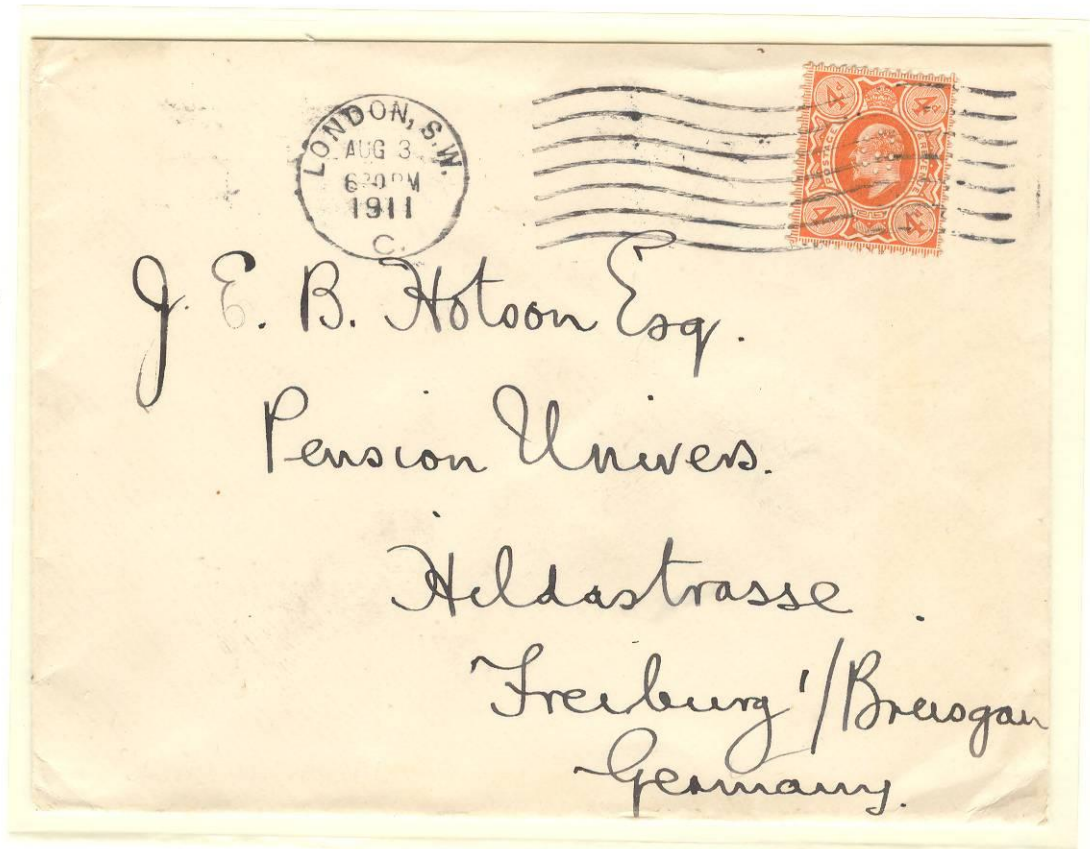 LONDON, S.W.
AUG 3
1911
C.
4d 4d
POSTAGE
4d 4d
J. E. B. Hotson Esq.
Pension Univers.
Hildastrasse
Freiburg i/Breisgau
Germany.